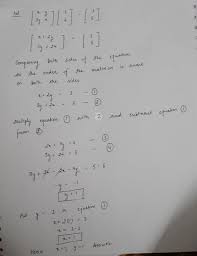 Sol
[x y / 3y x] [1 / 2] = [3 / 5]
[x + 2y / 3y + 2x] = [3 / 5]
Comparing both sides of the equation
as the order of the matrices is same
on both the sides
x + 2y = 3 — ①
3y + 2x = 5 — ②
Multiply equation ① with 2 and subtract equation ①
from ②
2x + 4y = 6 — ③
3y + 2x = 5 — ④
3y + 2x - 2x - 4y = 5 - 6
-y = -1
y = 1
Put y = 1 in equation ①
x + 2(1) = 3
x = 3 - 2
x = 1
Hence x = 1 y = 1 Answer